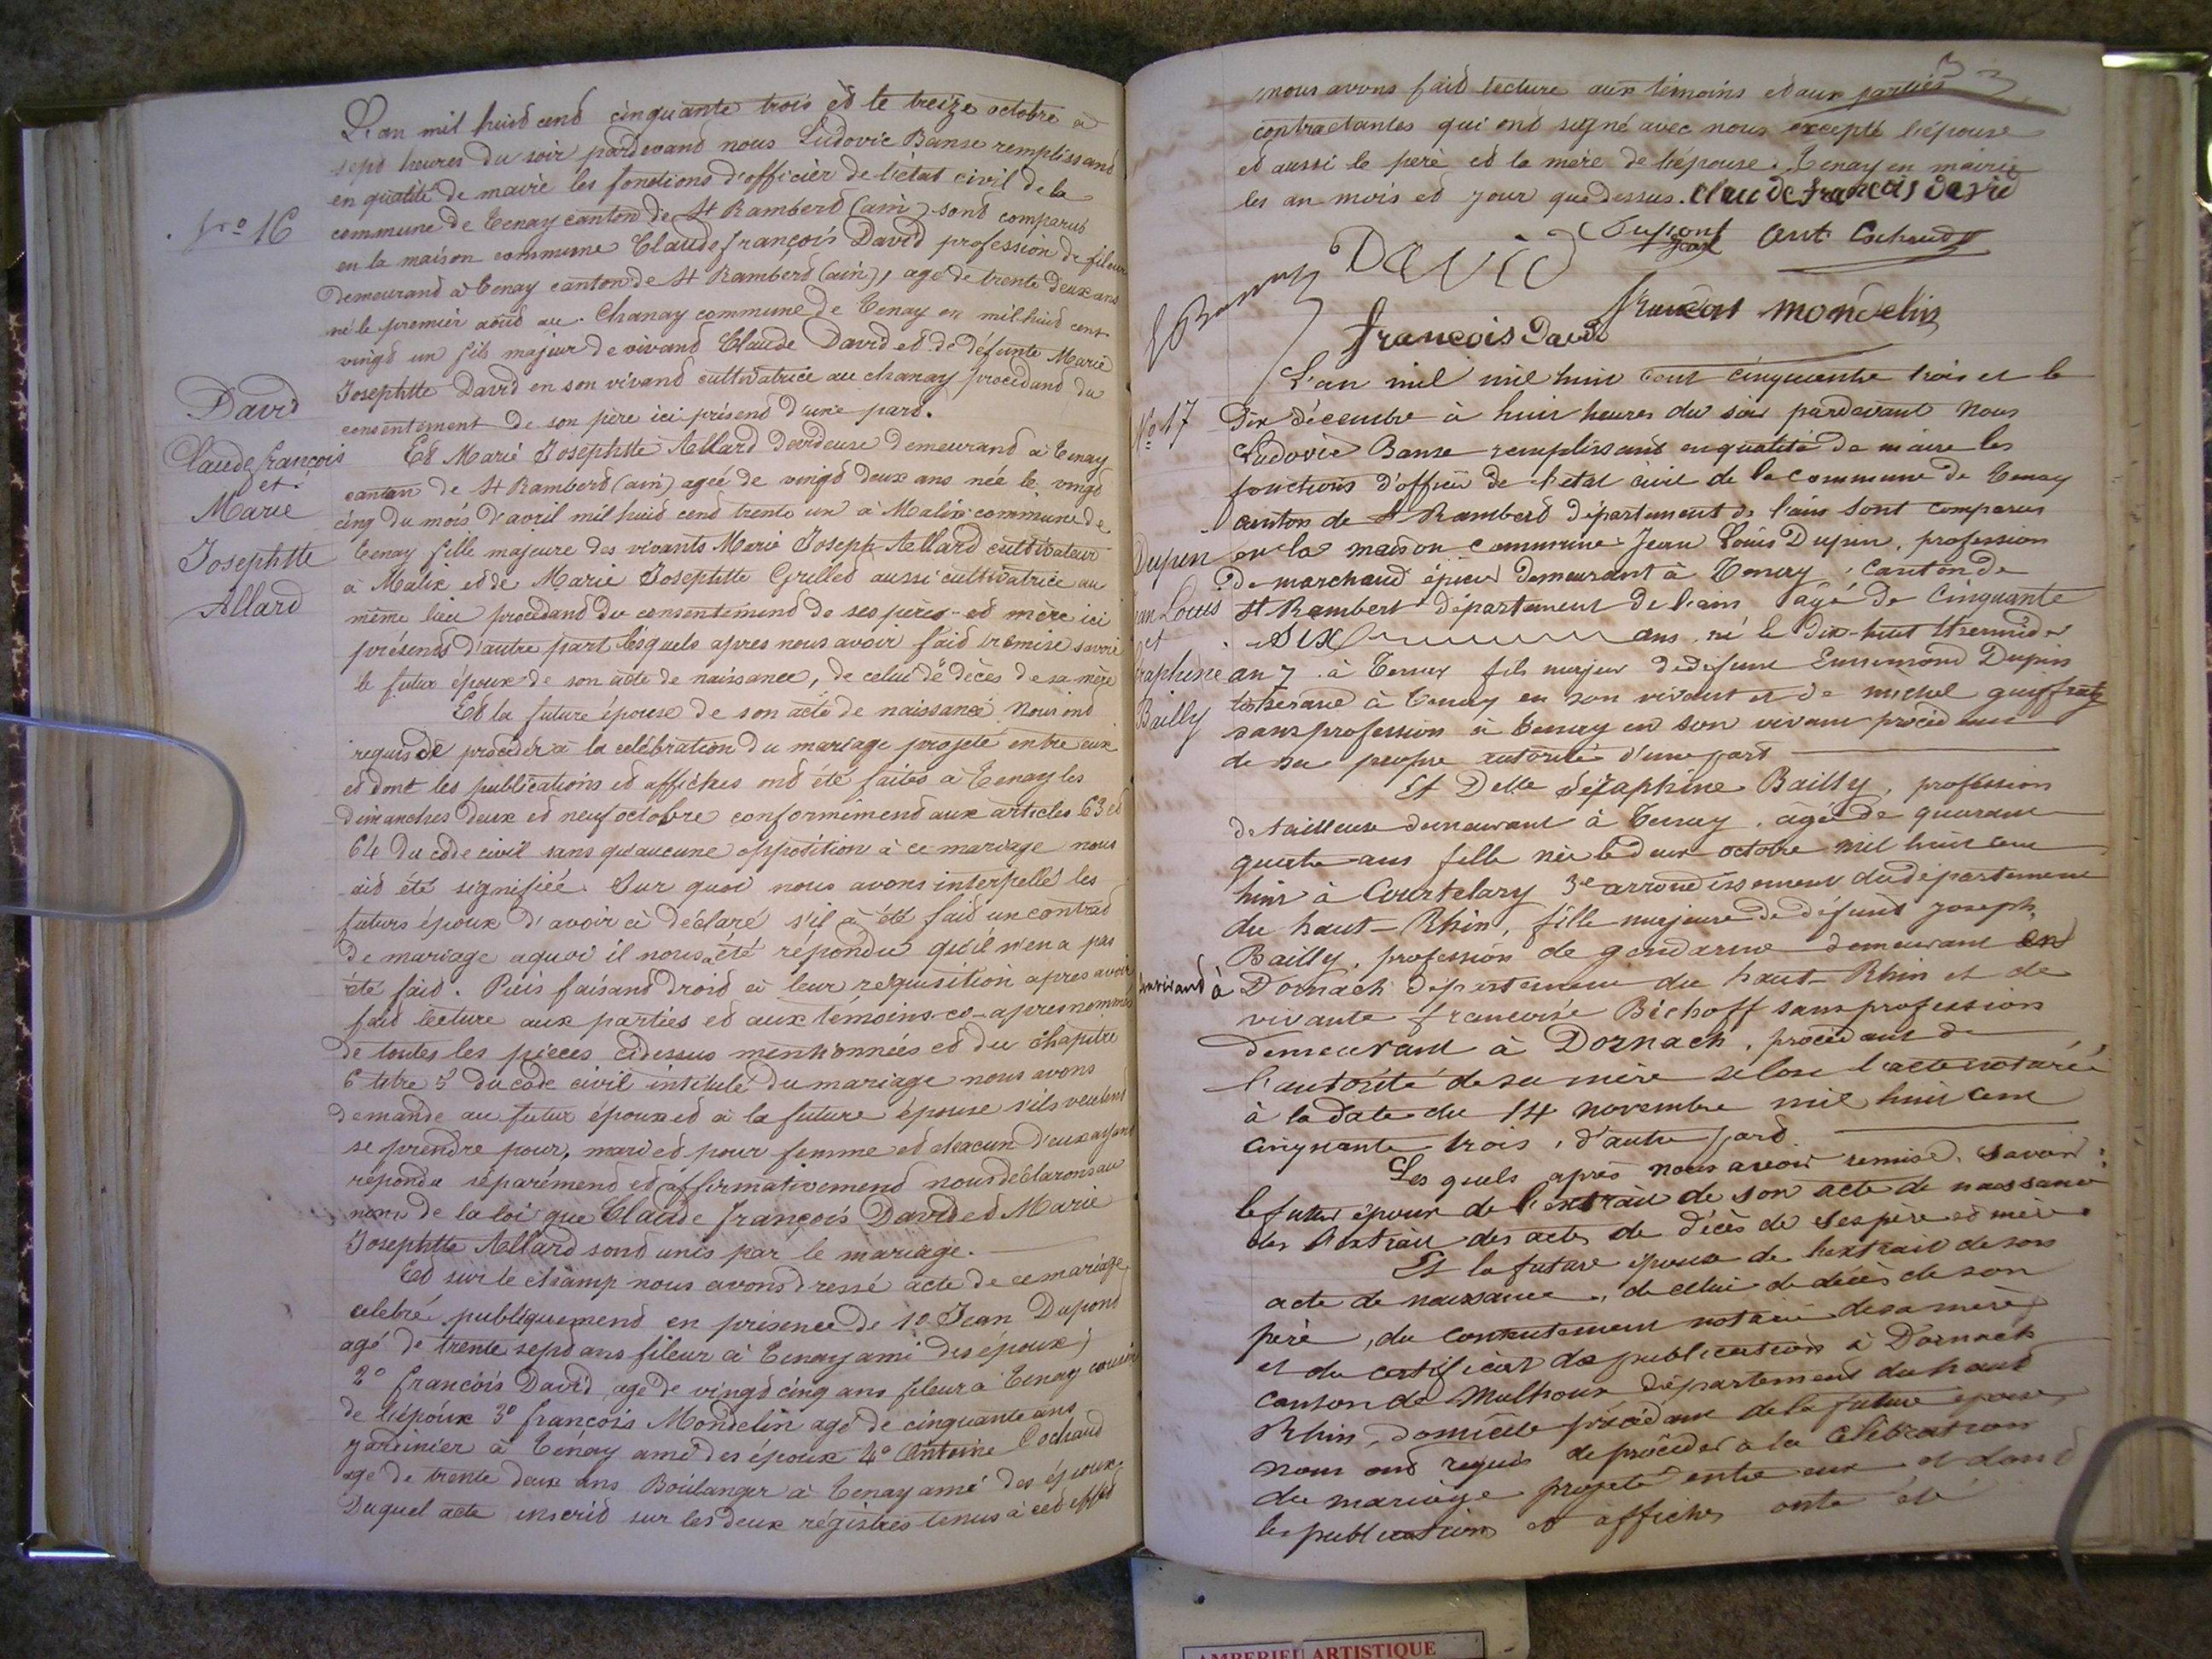 L'an mil huit cent cinquante trois et le treize octobre à
sept heures du soir pardevant nous Ludovic Banse remplissant
en qualité de maire les fonctions d'officier de l'état civil de la
commune de Tenay canton de St Rambert (ain) sont comparus
No 16
en la maison commune Claude françois David profession de fileur
demeurant à Tenay canton de St Rambert (ain), agé de trente deux ans
né le premier aout au Chanay commune de Tenay en mil huit cent
vingt un fils majeur de vivant Claude David et de défunte Marie
Josephtte David en son vivant cultivatrice au chanay procedant du
consentement de son père ici présent d'une part.
David
Claude françois
et
Marie
Josephtte
Allard
Et Marie Josephtte Allard devideuse demeurant à Tenay
canton de St Rambert (ain) agée de vingt deux ans née le vingt
cinq du mois d'avril mil huit cent trente un à Malix commune de
Tenay fille majeure des vivants Marie Joseph Allard cultivateur
à Malix et de Marie Josephtte Grillet aussi cultivatrice au
même lieu procedant du consentement de ses pères et mère ici
présents d'autre part lesquels apres nous avoir fait remise savoir
le futur époux de son acte de naissance, de celui de décès de sa mère
Et la future épouse de son acte de naissance nous ont
requis de procéder à la celébration du mariage projeté entre eux
et dont les publications et affiches ont été faites à Tenay les
dimanches deux et neuf octobre conformément aux articles 63 et
64 du code civil sans qu'aucune opposition à ce mariage nous
ait été signifiée. Sur quoi nous avons interpellé les
futurs époux d'avoir à déclaré s'il a été fait un contrat
de mariage aquoi il nous a été répondu qu'il n'en a pas
été fait. Puis faisant droit à leur requisition apres avoir
fait lecture aux parties et aux témoins ci-apres nommés
de toutes les pieces cidessus mentionnées et du chapitre
6 titre 5 du code civil intitulé du mariage nous avons
demandé au futur époux et à la future épouse s'ils veulent
se prendre pour mari et pour femme et chacun d'eux ayant
répondu séparément et affirmativement nous déclarons au
nom de la loi que Claude françois David et Marie
Josephtte Allard sont unis par le mariage.
Et sur le champ nous avons dressé acte de ce mariage
celebré publiquement en présence de 1o Jean Dupont
agé de trente sept ans fileur à Tenay ami des époux
2o françois David agé de vingt cinq ans fileur à Tenay cousin
de l'époux 3o françois Mondelin agé de cinquante ans
jardinier à Tenay ami des époux 4o Antoine Cochaud
agé de trente deux ans Boulanger à Tenay ami des époux.
Duquel acte inscrit sur les deux régistres tenus à cet effet
nous avons fait lecture aux témoins et aux parties
contractantes qui ont signé avec nous excepté l'épouse
et aussi le père et la mère de l'épouse. Tenay en mairie
les an mois et jour que dessus. Claude françois david
Dupont Ant Cochaud
David
L Banse
françois mondelin
françois David
L'an mil mil huit cent cinquante trois et le
No 17
dix décembre à huit heures du soir pardevant nous
Ludovic Banse remplissant en qualité de maire les
fonctions d'officier de l'état civil de la commune de Tenay
canton de St Rambert département de l'ain sont comparus
Dupin
Jean Louis
et
Séraphine
Bailly
en la maison commune Jean Louis Dupin, profession
de marchand épicier demeurant à Tenay, canton de
St Rambert département de l'ain agé de Cinquante
six ans né le dix-huit thermidor
an 7 à Tenay fils majeur de défunt Dupin
à Tenay en son vivant et de michel
sans profession à Tenay en son vivant procédant
de sa propre autorité d'une part
Et Delle Séraphine Bailly, profession
de tailleuse demeurant à Tenay, agée de quarante
quatre ans fille née le deux octobre mil huit cent
huit à Courtelary 3e arrondissement du département
du haut-Rhin, fille majeure de défunt Joseph
Bailly, profession de gendarme demeurant en
son vivant à Dornach département du haut-Rhin et de
vivante françoise Bichoff sans profession
demeurant à Dornach, procédant de
l'autorité de sa mère selon l'acte notarié
à la date du 14 novembre mil huit cent
cinquante trois, d'autre part.
Les quels après nous avoir remise savoir:
le futur époux de l'extrait de son acte de naissance
des l'extrait des actes de décès de ses père et mère.
Et la future épouse de l'extrait de son
acte de naissance, de celui de décès de son
père, du consentement notarié de sa mère
et du certificat de publication à Dornach
canton de Mulhouse département du haut
Rhin, domicile précédant de la future épouse,
nous ont requis de procéder à la célébration
du mariage projeté entre eux et dont
les publications et affiches ont été
AMBERIEU ARTISTIQUE